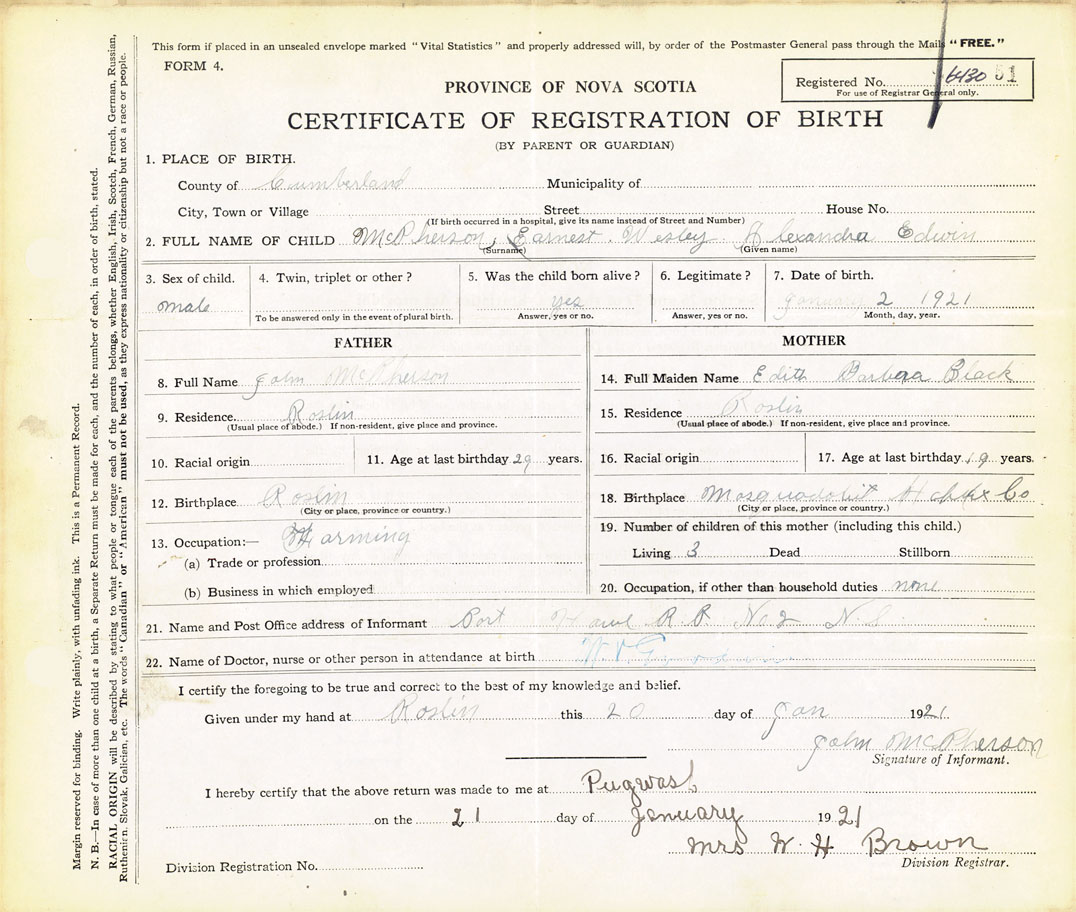 This form if placed in an unsealed envelope marked "Vital Statistics" and properly addressed will, by order of the Postmaster General pass through the Mails "FREE."
FORM 4.
Registered No. 6430 51
For use of Registrar General only.
PROVINCE OF NOVA SCOTIA
CERTIFICATE OF REGISTRATION OF BIRTH
(BY PARENT OR GUARDIAN)
1. PLACE OF BIRTH.
County of Cumberland Municipality of
City, Town or Village Street House No.
(If birth occurred in a hospital, give its name instead of Street and Number)
2. FULL NAME OF CHILD McPherson, Earnest. Wesley Alexandra Edwin
(Surname) (Given name)
3. Sex of child. 4. Twin, triplet or other? 5. Was the child born alive? 6. Legitimate? 7. Date of birth.
male yes January 2 1921
To be answered only in the event of plural birth. Answer, yes or no. Answer, yes or no. Month, day, year.
FATHER
8. Full Name John McPherson
9. Residence Roslin
(Usual place of abode.) If non-resident, give place and province.
10. Racial origin 11. Age at last birthday 29 years.
12. Birthplace Roslin
(City or place, province or country.)
13. Occupation:— Farming
(a) Trade or profession
(b) Business in which employed
MOTHER
14. Full Maiden Name Edith Barbara Black
15. Residence Roslin
(Usual place of abode.) If non-resident, give place and province.
16. Racial origin 17. Age at last birthday 19 years.
18. Birthplace Mosquodobit Co
(City or place, province or country.)
19. Number of children of this mother (including this child.)
Living 3 Dead Stillborn
20. Occupation, if other than household duties none
21. Name and Post Office address of Informant Port R. R. No 2 N.S
22. Name of Doctor, nurse or other person in attendance at birth
I certify the foregoing to be true and correct to the best of my knowledge and belief.
Given under my hand at Roslin this 20 day of Jan 1921.
John McPherson
Signature of Informant.
I hereby certify that the above return was made to me at Pugwash
on the 21 day of January 1921
Mrs W. H Brown
Division Registrar.
Division Registration No.
Margin reserved for binding. Write plainly, with unfading ink. This is a Permanent Record.
N. B.—In case of more than one child at a birth, a Separate Return must be made for each, and the number of each, in order of birth, stated.
RACIAL ORIGIN will be described by stating to what people or tongue each of the parents belongs, whether English, Irish, Scotch, French, German, Russian,
Ruthenirn, Slovak, Galician, etc. The words "Canadian" or "American" must not be used, as they express nationality or citizenship but not a race or people.